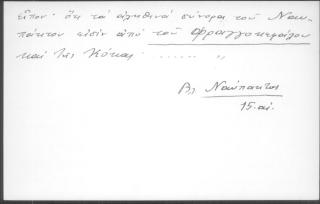 εἶπον· ὅτι τὰ ἀληθινὰ σύνορα τοῦ Ναυ-
πάκτου εἰσὶν ἀπὸ τοῦ Φραγγοκεφάλου
καὶ τῆς Κόκας ........ "
Βλ Ναύπακτος
15. αἰ.